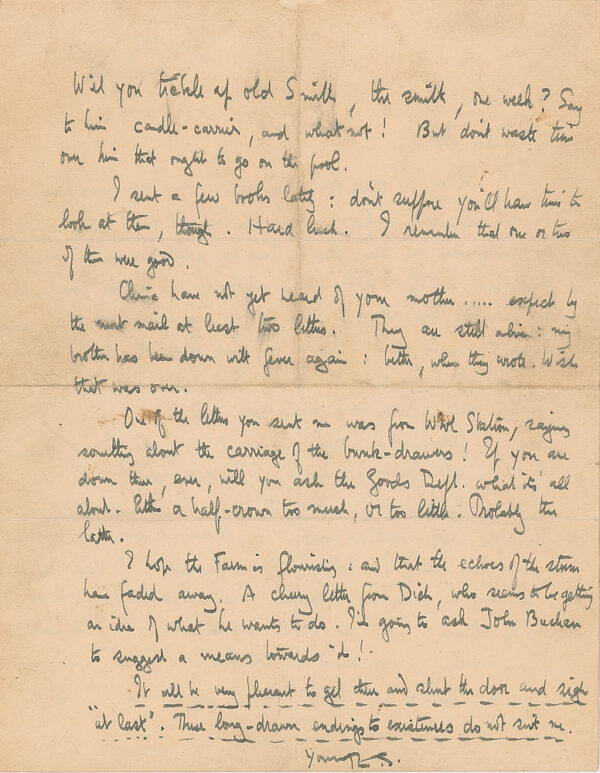 Will you tickle up old Smith, the smith, one week? Say
to him candle-carrier, and what not! But don't waste time
over him that ought to go on the pool.
I sent a few books lately: don't suppose you'll have time to
look at them, though. Hard luck. I remember that one or two
of them were good.
China have not yet heard of your mother..... expect by
the next mail at least two letters. They are still alive: my
brother has been down with fever again: better, when they wrote. Wish
that was over.
One of the letters you sent me was from Wool Station, saying
something about the carriage of the bunk-drawers! If you are
down there, ever, will you ask the Goods Dept. what it's all
about. Either a half-crown too much, or too little. Probably the
latter.
I hope the Farm is flourishing: and that the echoes of the storm
have faded away. A cheery letter from Dick, who seems to be getting
an idea of what he wants to do. I'm going to ask John Buchan
to suggest a means towards it!
It will be very pleasant to get there and shut the door and sigh
"at last". These long-drawn endings to existences do not suit me.
Yours